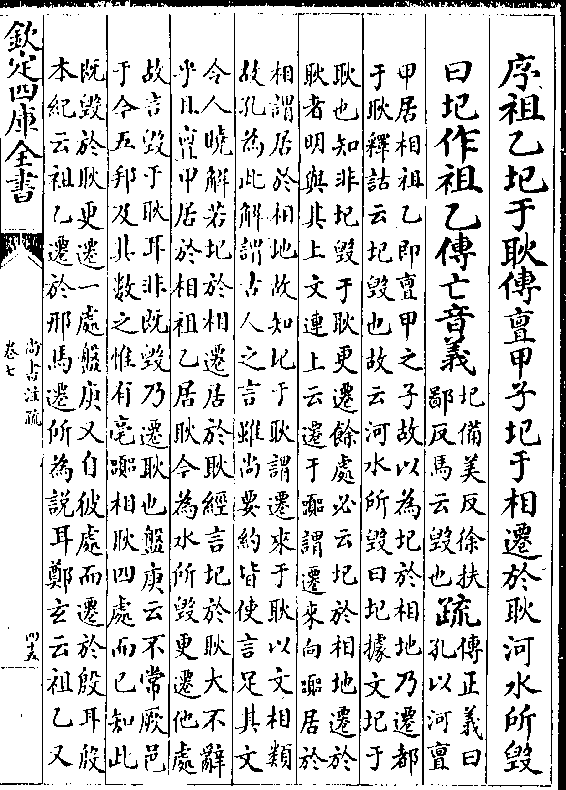 序祖乙圮于耿傳亶甲子圮于相遷於耿河水所毀
曰圮作祖乙傳亡音義圮備美反徐扶鄙反馬云毀也疏傳正義曰孔以河亶
甲居相祖乙即亶甲之子故以為圮於相地乃遷都
于耿釋詁云圮毀也故云河水所毀曰圮據文圮于
耿也知非圮毀于耿更遷餘處必云圮於相地遷於
耿者明與其上文連上云遷于囂謂遷來向囂居於
相謂居於相地故知圮于耿謂遷來于耿以文相類
故孔為此解謂古人之言雖尚要約皆使言足其文
令人曉解若圮於相遷居於耿經言圮於耿大不辭
乎且亶甲居於相祖乙居耿今為水所毀更遷他處
故言毀于耿耳非既毀乃遷耿也盤庚云不常厥邑
于今五邦及其數之惟有亳囂相耿四處而已知此
既毀於耿更遷一處盤庚又自彼處而遷於殷耳殷
本紀云祖乙遷於邢馬遷所為說耳鄭玄云祖乙又
欽定四庫全書
尚書注疏
卷七
四五